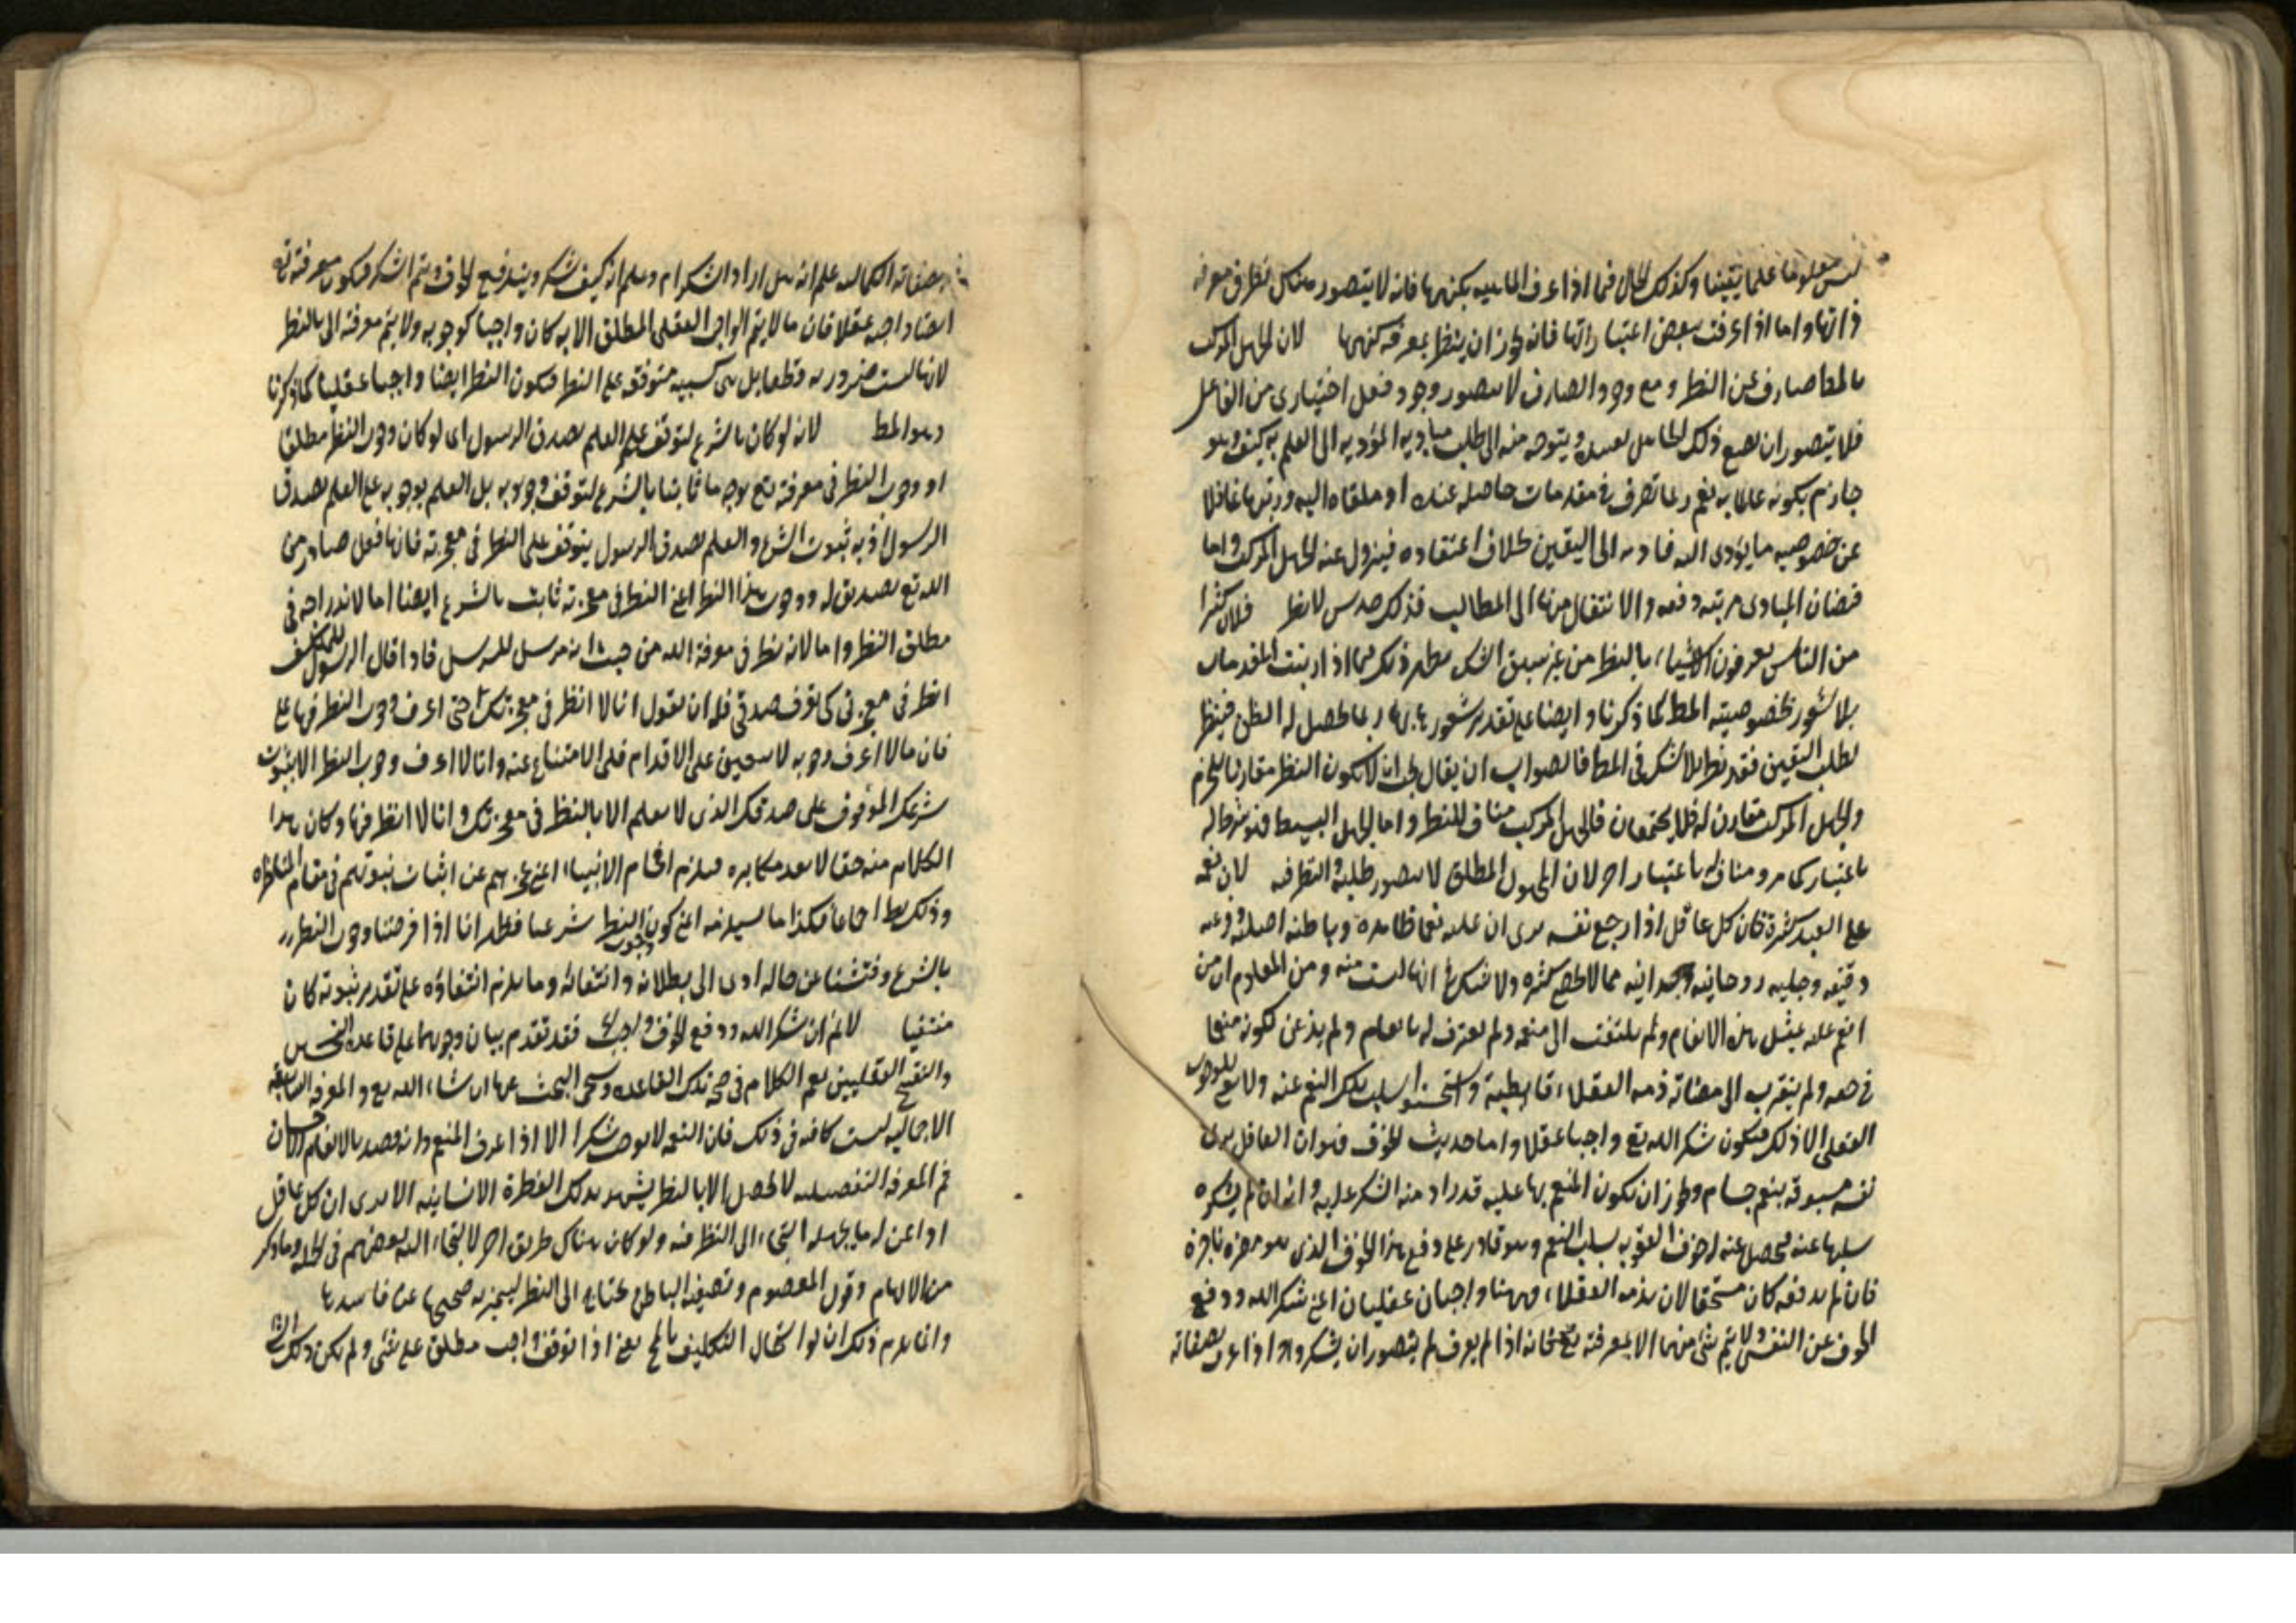 ليس معلوما علما يقينا وكذلك الحال فيما اذا عرف الماهيه بكنهها فانه لا يتصور هناك نظر في معرفة
ذاتها واما اذا عرفت ببعض اعتباراتها فانه يجوز ان ينظر لمعرفه كنهها لان الجهل المركب
بالمط صارف عن النظر ومع وجود الصارف لا يتصور وجود فعل اختياري من الفاعل
فلا يتصور ان يضع ذلك الجاهل بعيده ويتوجه منه الى طلب مباديه المؤديه الى العلم به كيف وهو
جازم بكونه عالما به نعم ربما تصرف في مقدمات حاصله عنده او ملقاه اليه ورتبها غافلا
عن خصوصيه ما يؤدى اليه فادته الى اليقين بخلاف اعتقاده فيزول عنه الجهل المركب واما
فيضان المبادى مرتبه دفعه والانتقال منها الى المطالب فذلك حدس لا نظر فلان كثيرا
من الناس يعرفون الاشياء بالنظر من غير سبق الشك يظهر ذلك فيما اذا رتبت المقدمات
بلا شعور بخصوصية المط كما ذكرنا وايضا على تقدير شعوره بها ربما يحصل له الظن فينظر
لطلب اليقين فقد نظر بلا شك في المط فالصواب ان يقال يجب ان لا يكون النظر مقارنا للجزم
والجهل المركب مقارن له فلا يجتمعان فالجهل المركب مناف للنظر واما الجهل البسيط فهو شرط له
باعتبار كما مر ومناف له باعتبار اخر لان المجهول المطلق لا يتصور طلبه والنظر فيه لان نعمه
على العبد كثيرة فان كل عاقل اذا راجع نفسه يرى ان عليه نعما ظاهره وباطنه اصليه وفرعيه
دقيقه وجليه روحانيه وجسدانيه مما لا يحصى كثره ولا شك في انها ليست منه ومن المعلوم ان من
انعم عليه بمثل هذه الانعام ولم يلتفت الى منعمه ولم يعترف له بانعام ولم يذعن لكونه منعما
في حقه ولم يتقرب الى مرضاته ذمه العقلاء قاطبة واستحسنوا سلب تلك النعم عنه ولا معنى للوجوب
العقلى الا ذلك فيكون شكر الله تع واجبا عقلا واما حديث الخوف فهو ان العاقل يرى
نفسه مسبوقه بنعم جسام ويجوز ان يكون المنعم بها عليه قد اراد منه الشكر عليها وانه ان لم يشكره
سلبها عنه فيحصل عنه له خوف العقوبه بسلب النعم وهو قادر على دفع هذا الخوف الذى هو مضرة ناجزة
فان لم يدفعه كان مستحقا لان يذمه العقلاء فههنا واجبان عقليان اعنى شكر الله ودفع
الخوف عن النفس ولا يتم شئ منهما الا بمعرفته تع فانه اذا لم يعرف لم يتصور ان يشكر واذا عرف بصفاته
بصفاته الكماليه علم انه هل اراد الشكر ام لا وعلم انه كيف يشكر ويندفع الخوف ويتم الشكر فيكون معرفته تع
ايضا واجبه عقلا فان ما لا يتم الواجب العقلى المطلق الا به كان واجبا كوجوبه ولا يتم معرفته الا بالنظر
لانها ليست ضروريه قطعا بل هى كسبيه متوقفه على النظر فيكون النظر ايضا واجبا عقليا كما ذكرنا
وهو المط لانه لو كان بالشرع لتوقف على العلم بصدق الرسول اى لو كان وجوب النظر مطلقا
او وجوب النظر في معرفته تع بوجه ما ثابتا بالشرع لتوقف وجوبه بل العلم بوجوبه على العلم بصدق
الرسول اذ به ثبوت الشرع والعلم بصدق الرسول يتوقف على النظر في معجزته فانها فعل صادر من
الله تع تصديق له ووجوب هذا النظر اعنى النظر في معجزته ثابت بالشرع ايضا اما لاندراجه في
مطلق النظر واما لانه نظر في معرفة الله من حيث انه مرسل للرسل فاذا قال الرسول للمكلف
انظر في معجزتى كى تعرف صدقى فله ان يقول انا لا انظر في معجزتك حتى اعرف وجوب النظر فيها على
فان ما لا اعرف وجوبه لا يتعين على الاقدام فلى الامتناع عنه وانا لا اعرف وجوب النظر الا بثبوت
شرعك الموقوف على صدقك الذى لا يعلم الا بالنظر في معجزتك وانا لا انظر فيها وكان هذا
الكلام منه حقا لا يعد مكابره فيلزم افحام الانبياء اعنى عجزهم عن اثبات نبوتهم في مقام المناظرة
وذلك بط اجماعا فكذا ما يستلزمه اعنى كون وجوب النظر شرعيا فظهر انا اذا فرضنا وجوب النظر
بالشرع وفتشنا عن حاله ادى الى بطلانه وانتفائه وما يلزم انتفاؤه على تقدير ثبوته كان
منتفيا لا نم ان شكر الله ودفع الخوف واجب فقد تقدم بيان وجوبهما على قاعدة التحسين
والتقبيح العقليين نعم الكلام في صحة تلك القاعده وسيجى البحث عنها ان شاء الله تع والمعرفه السابقه
الاجماليه ليست كافيه في ذلك فان النعمه لا توجب شكرا الا اذا عرف المنعم وانه قصد بالانعام الاحسان
ثم المعرفه التفصيليه لا تحصل الا بالنظر يشهد بذلك الفطرة الانسانيه الا يرى ان كل عاقل
اذا عن له ما يجهله التجاء الى النظر فيه ولو كان هناك طريق اخر لالتجاء اليه بعضهم في الجمله وما ذكر
من الالهام وقول المعصوم وتصفيه الباطن محتاج الى النظر ليميز به صحيحها عن فاسدها
وانما يلزم ذلك ان لو استحال التكليف بالمح يعنى اذا توقف واجب مطلق على شئ ولم يكن ذلك الشئ